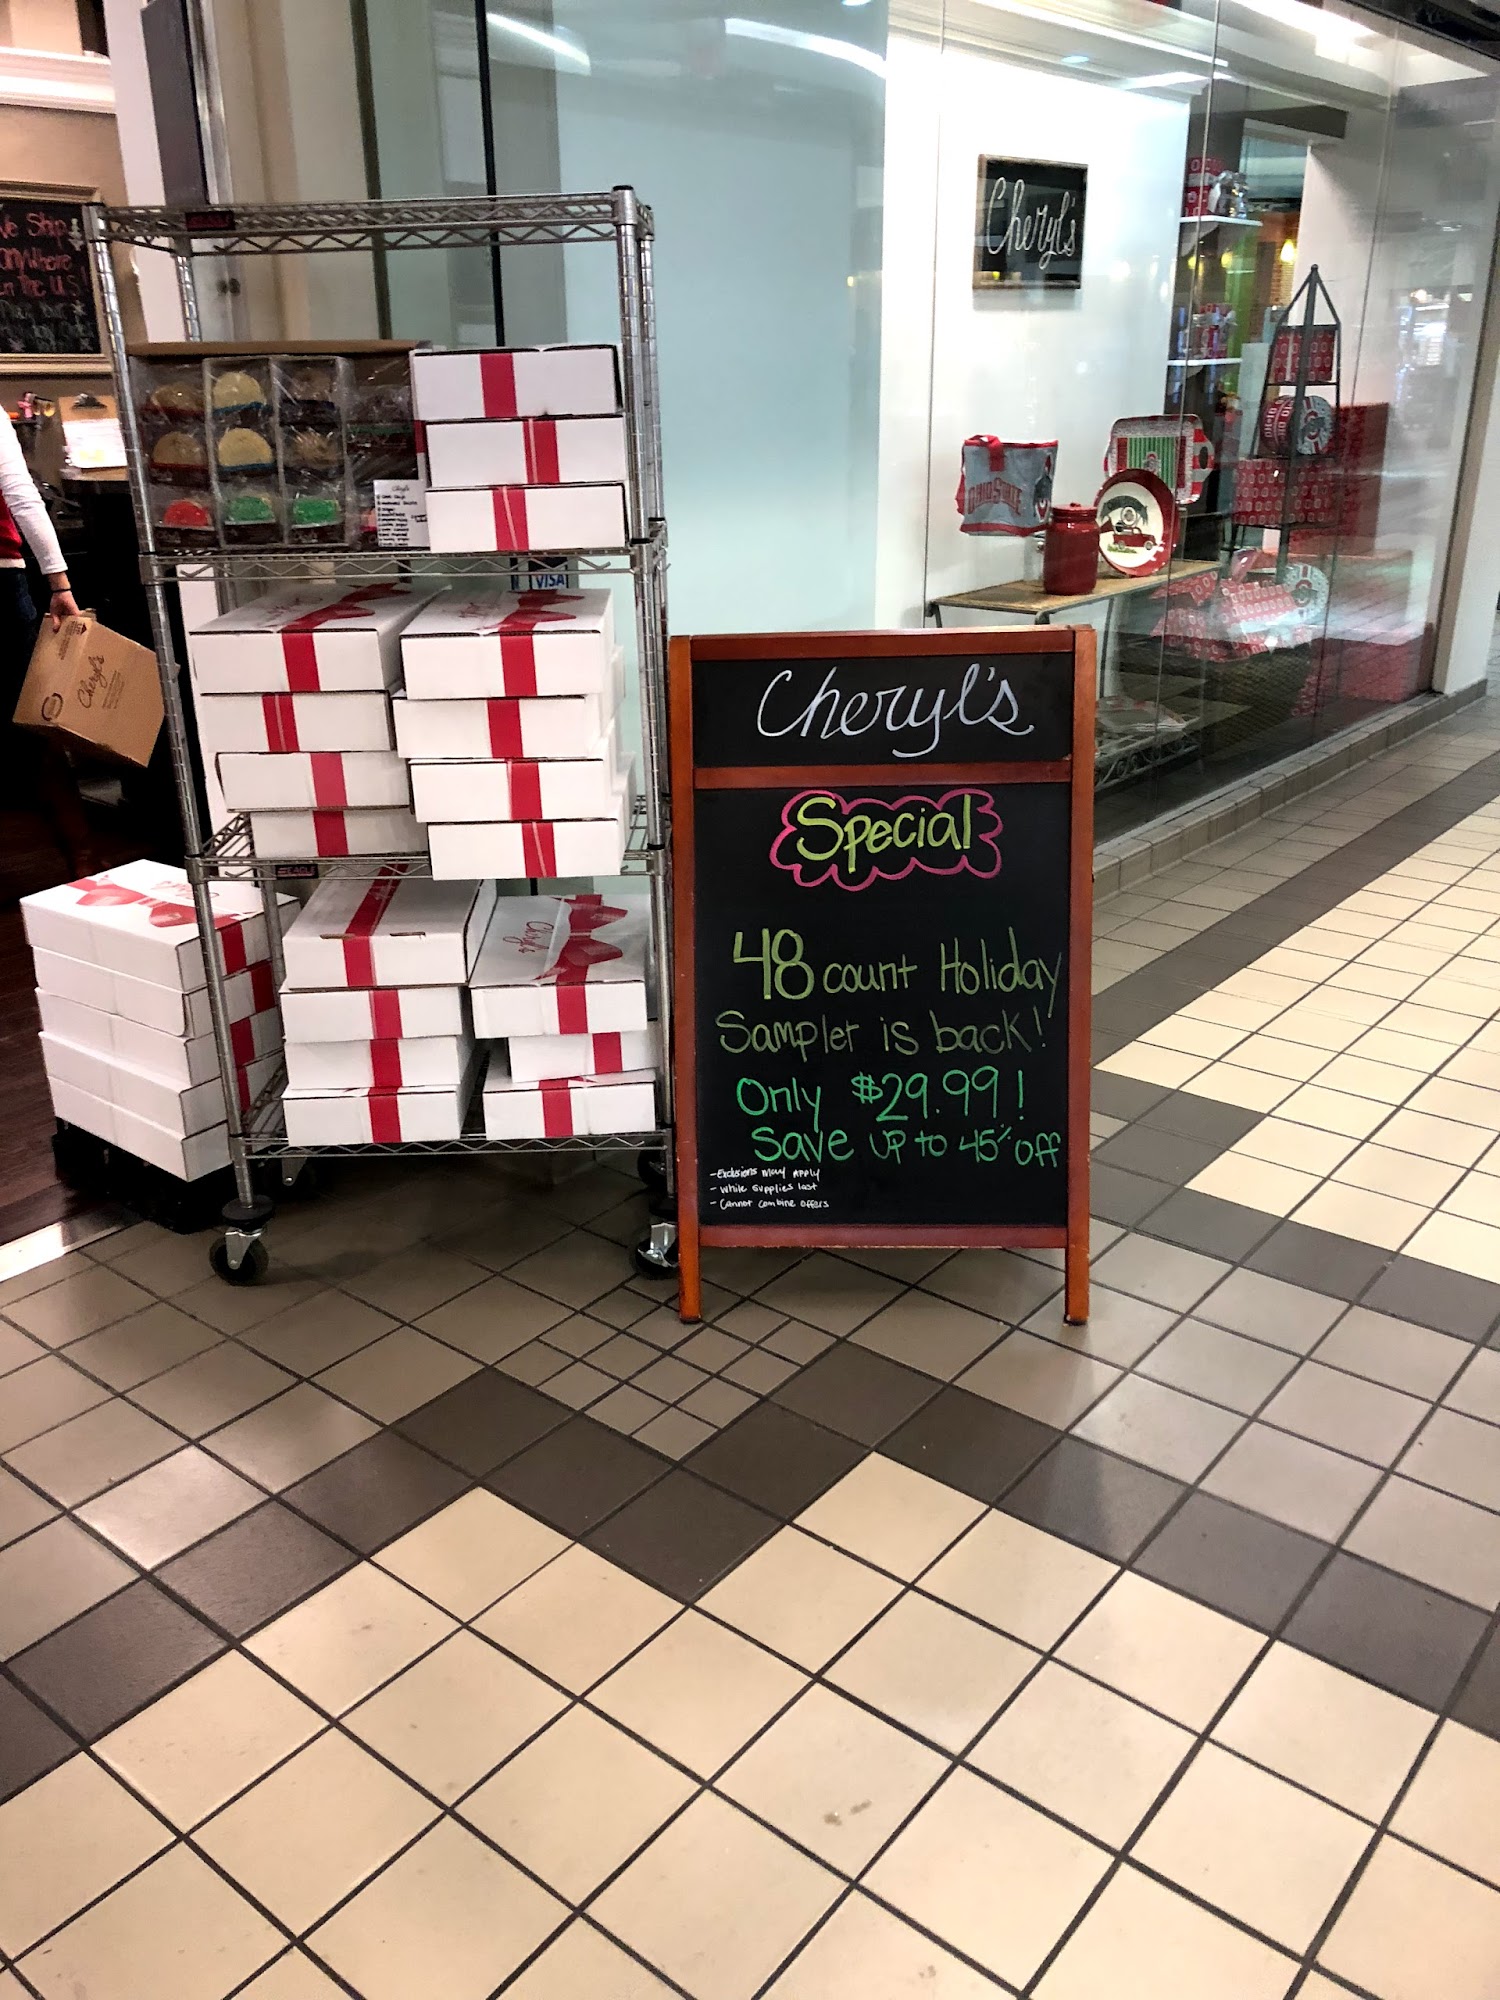 We Ship
Anywhere
in the U.S!
Cheryl's
OHIO STATE
Cheryl's
VISA
Cheryl's
EAGLE
Cheryl's
Cheryl's
Special
48 count Holiday
Sampler is back!
Only $29.99!
Save up to 45% off
- Exclusions may apply
- while supplies last
- Cannot combine offers